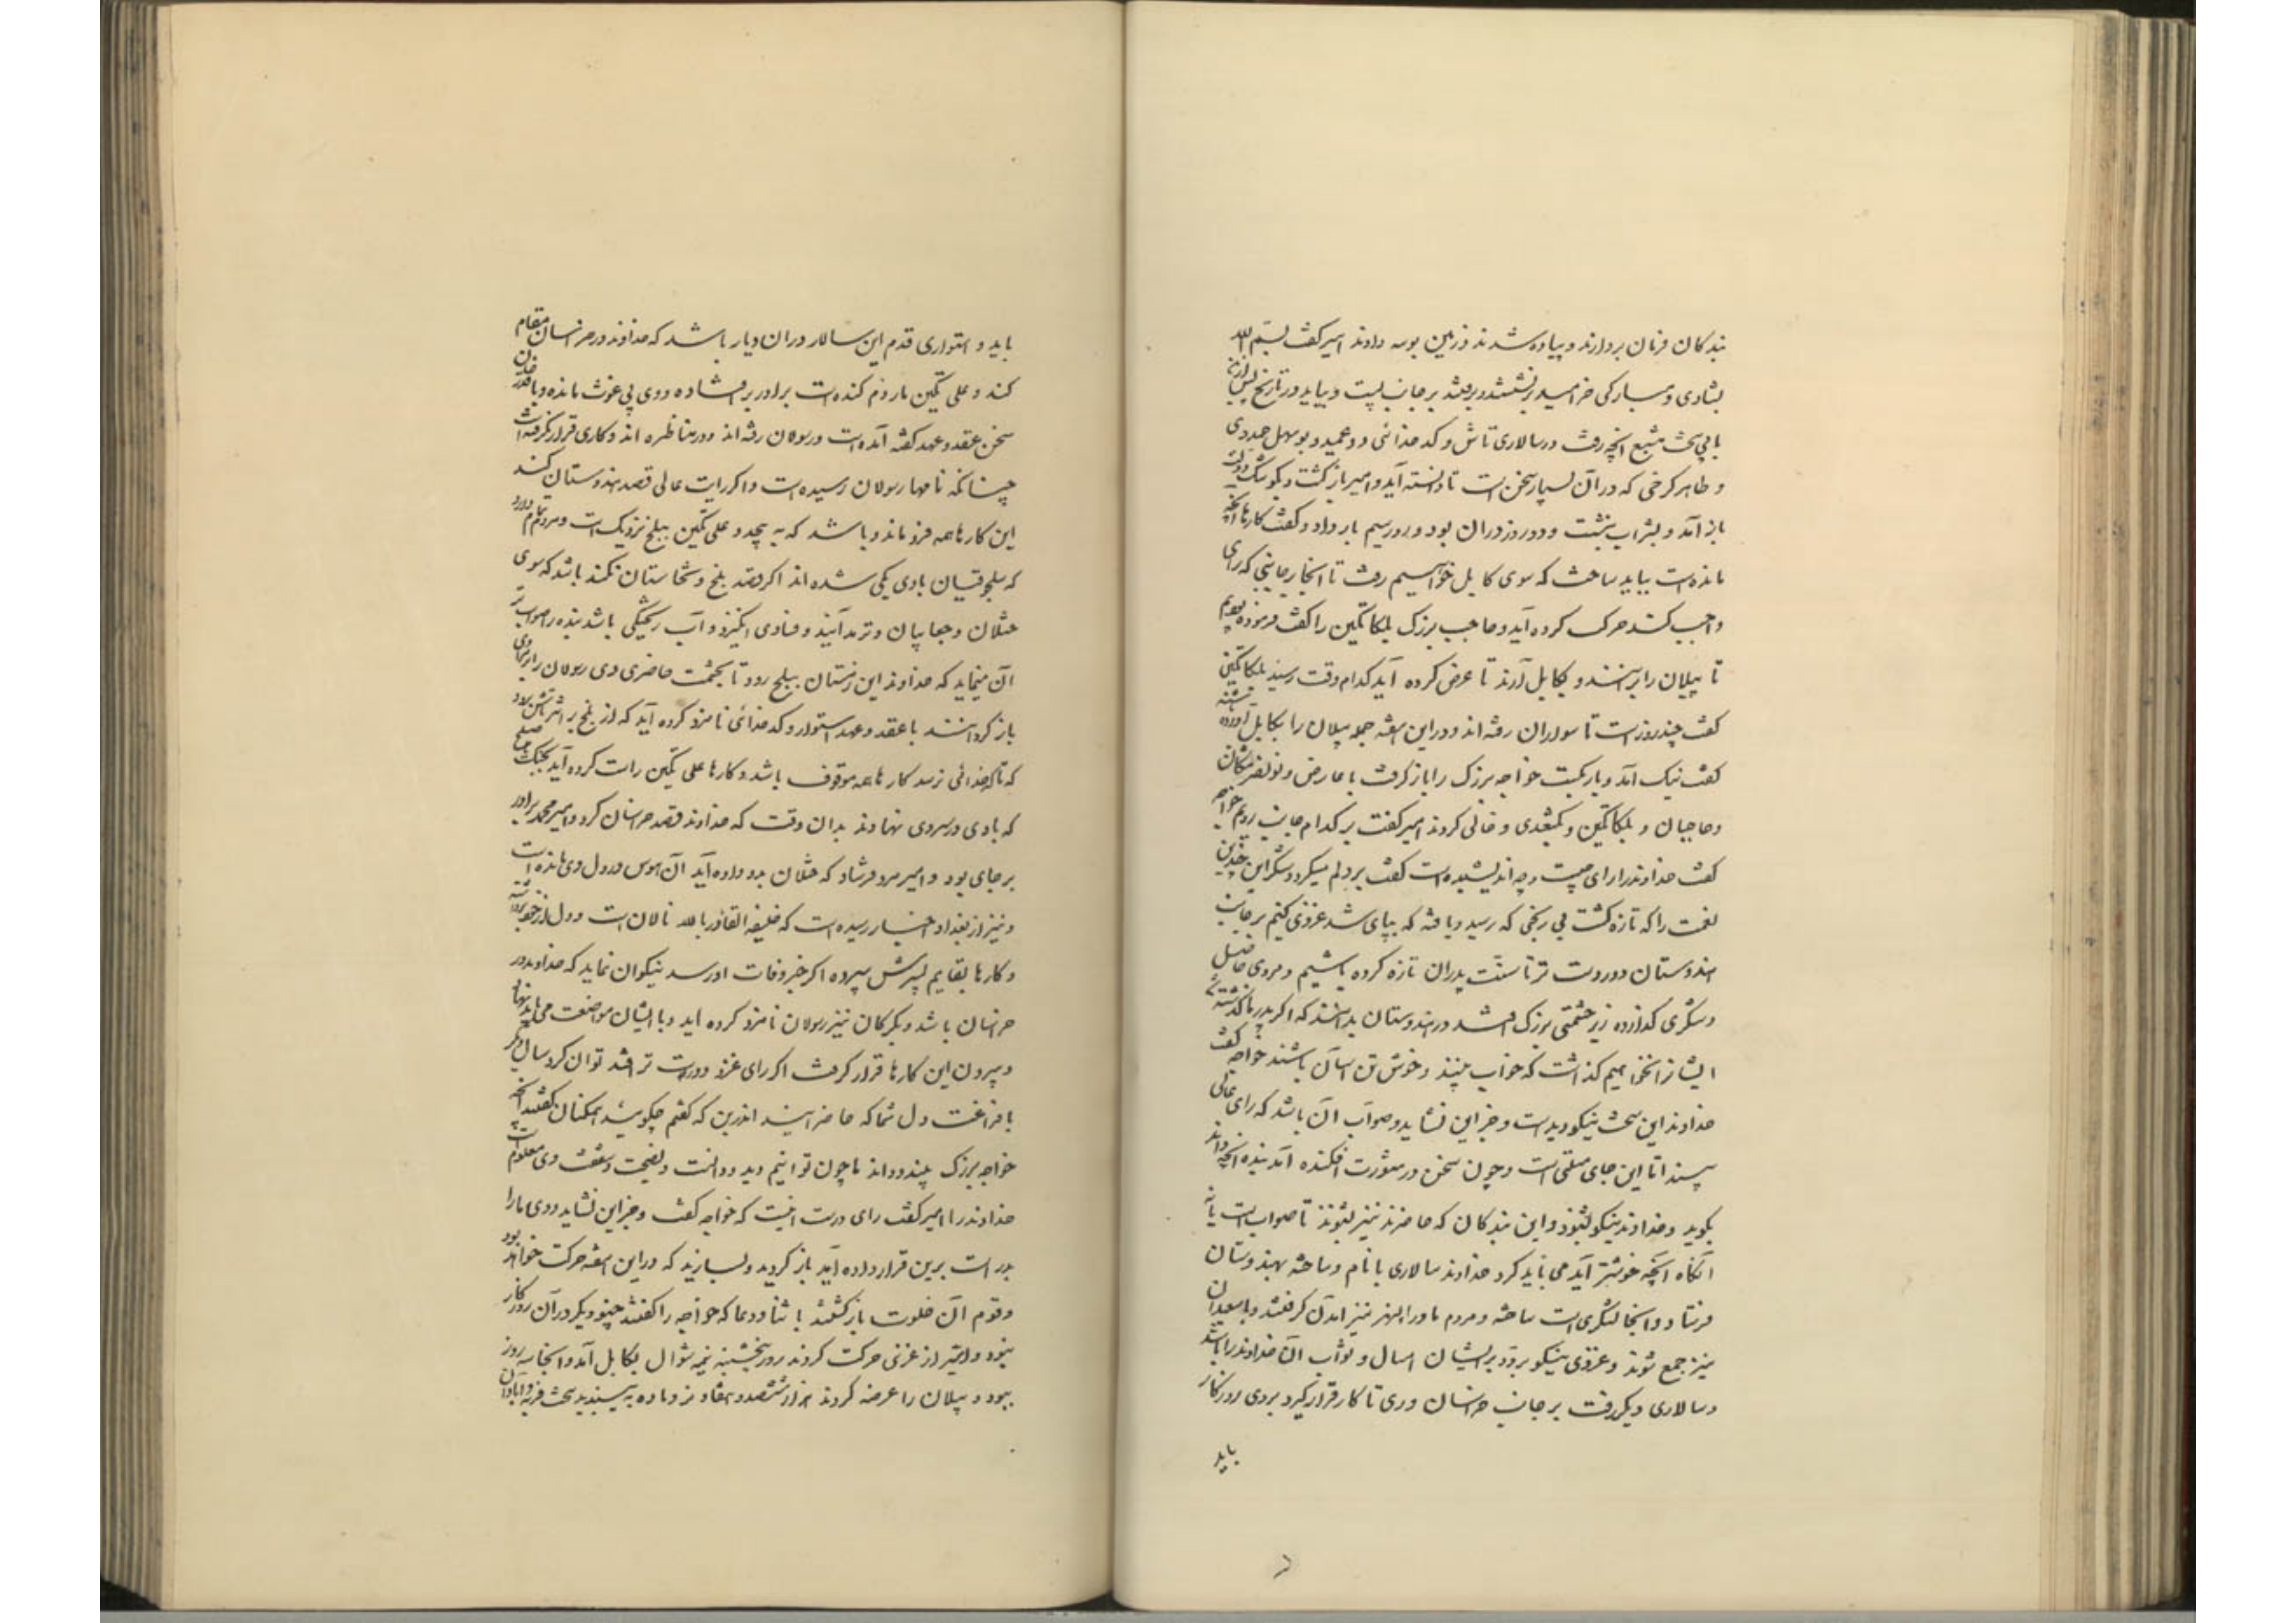 بندکان فرمان بردارند و پیاده شدند و زمین بوسه دادند امیر گفت بسم الله
بشادی و مبارکی خرامید برنشستند و برفتند بر جانب بست و بیاید در تاریخ پس ازین
بابی سخت مشبع آنچه رفت در سالاری تاش و کدخدائی دو عمید و بوسهل حمدوی
و طاهر کرخی که در آن بسیار سخن است تا دانسته آید و امیر بازگشت و بکوشک دولت
باز آمد و بشراب بنشست و دو روز در آن بود و روز سیم بار داد و گفت کارها آنچه
مانده است بباید ساخت که سوی کابل خواهیم رفت تا آنجا بر جانبی که رای
واجب کند حرکت کرده آید و حاجب بزرک بلکاتکین را گفت فرموده بودیم
تا پیلان را برانند و بکابل آرند تا عرض کرده آید کدام وقت رسند بلکاتکین
گفت چند روز است تا سواران رفته اند و در این هفته جمله پیلان را بکابل آورده باشند
گفت نیک آمد و بار بکست خواجه بزرک را باز گرفت با عارض و بونصر مشکان
و حاجبان و بلکاتکین و بکتغدی و خالی کردند امیر گفت بر کدام جانب رویم خواجه
گفت خداوند را رای چیست و چه اندیشیده است گفت بر دلم میکردد شکر این چندین
نعمت را که تازه گشت بی رنجی که رسید و یا فتنه که بپای شد غزوی کنیم بر جانب
هندوستان دور دست تر تا سنت پدران تازه کرده باشیم و مزدی حاصل
و شکری گذارده و نیز حشمتی بزرک افتد در هندوستان بدانند که اگر پدر ما گذشته شد
ایشانرا نخواهیم گذاشت که خواب بینند و خوش و تن آسان باشند خواجه گفت
خداوند این سخت نیکو دیده است و جز این نشاید و صواب آن باشد که رای عالی
بیند اما این جای مسئلتی است و چون سخن در مشورت افکنده آمد بنده آنچه داند
بگوید و خداوند نیکو بشنود و این بندکان که حاضرند نیز بشنوند تا صواب است یا نه
آنگاه آنچه خوشتر آید می باید کرد خداوند سالاری با نام و ساخته بهندوستان
فرستاد و آنجا لشکری است ساخته و مردم ماوراء النهر نیز آمدن گرفتند و با سعیدان
نیز جمع شوند و غزوی نیکو برود بر ایشان امسال و ثواب آن خداوند را باشد
و سالاری دیگر رفت بر جانب خراسان و ری تا کار قرار گیرد بر وی روزگار
باید
باید و استواری قدم این سالار در آن دیار باشد که خداوند در خراسان مقام
کند و علی تکین مار دم کنده است برادر بر افتاده و وی بی غوث مانده و با قدر خان
سخن عقد و عهد گفته آمده است و رسولان رفته اند و در مناظره اند و کاری قرار نگرفته است
چنانکه نامهای رسولان رسیده است و اگر رایت عالی قصد هندوستان کند
این کارها همه فرو ماند و باشد که به پیچد و علی تکین ببلخ نزدیک است و مردم تمام دارد
که سلجوقیان با وی یکی شده اند اگر قصد بلخ و تخارستان نکند باشد که سوی
ختلان و چغانیان و ترمد آیند و فسادی انگیزد و آب ریختگی باشد بنده را صواب تر
آن مینماید که خداوند این زمستان ببلخ رود تا بحشمت حاضری وی رسولان را بر مراد
باز گردانند با عقد و عهد استوار و کدخدائی نامزد کرده آید که از بلخ بر اثر تاش برود
که تا کدخدائی نرسد کارها همه موقوف باشد و کارها علی تکین راست کرده آید بجنگ یا صلح
که بادی در سر وی نهادند بدان وقت که خداوند قصد خراسان کرد و امیر محمد برادر
بر جای بود و امیر مرد فرستاد که ختلان بدو داده آید آن هوس در دل وی مانده است
و نیز از بغداد اخبار رسیده است که خلیفه القادر بالله نالان است و دل از خود برداشته
و کارها بقایم پسرش سپرده اگر خبر وفات او رسد نیکو آن نماید که خداوند در
خراسان باشد و بگرگان نیز رسولان نامزد کرده اید و با ایشان مواضعت می باید نهاد
و بیرون این کارها قرار گرفت اگر رای غزو دور دست تر افتد توان کرد سال دیگر
با فراغت دل شما که حاضر آیید اندرین که گفتم چگوئید همکنان گفتند آنچه
خواجه بزرک بیند و داند ما چون توانیم دید و دانست و نصیحت و شفقت وی معلوم است
خداوند را امیر گفت رای درست اینست که خواجه گفت و جز این نشاید و وی ما را
پدر است برین قرار داده آید بازگردید و بسازید که در این هفته حرکت خواهد بود
و قوم آن خلوت بازگشتند با ثنا و دعا که خواجه را گفتند چنو دیگر در آن روزگار
نبود و امیر از غزنین حرکت کردند روز پنجشنبه نیمه شوال بکابل آمد و آنجا سه روز
ببود و پیلان را عرضه کردند هزار و ششصد و هفتاد نر و ماده به پسندید سخت فربه و آبادان